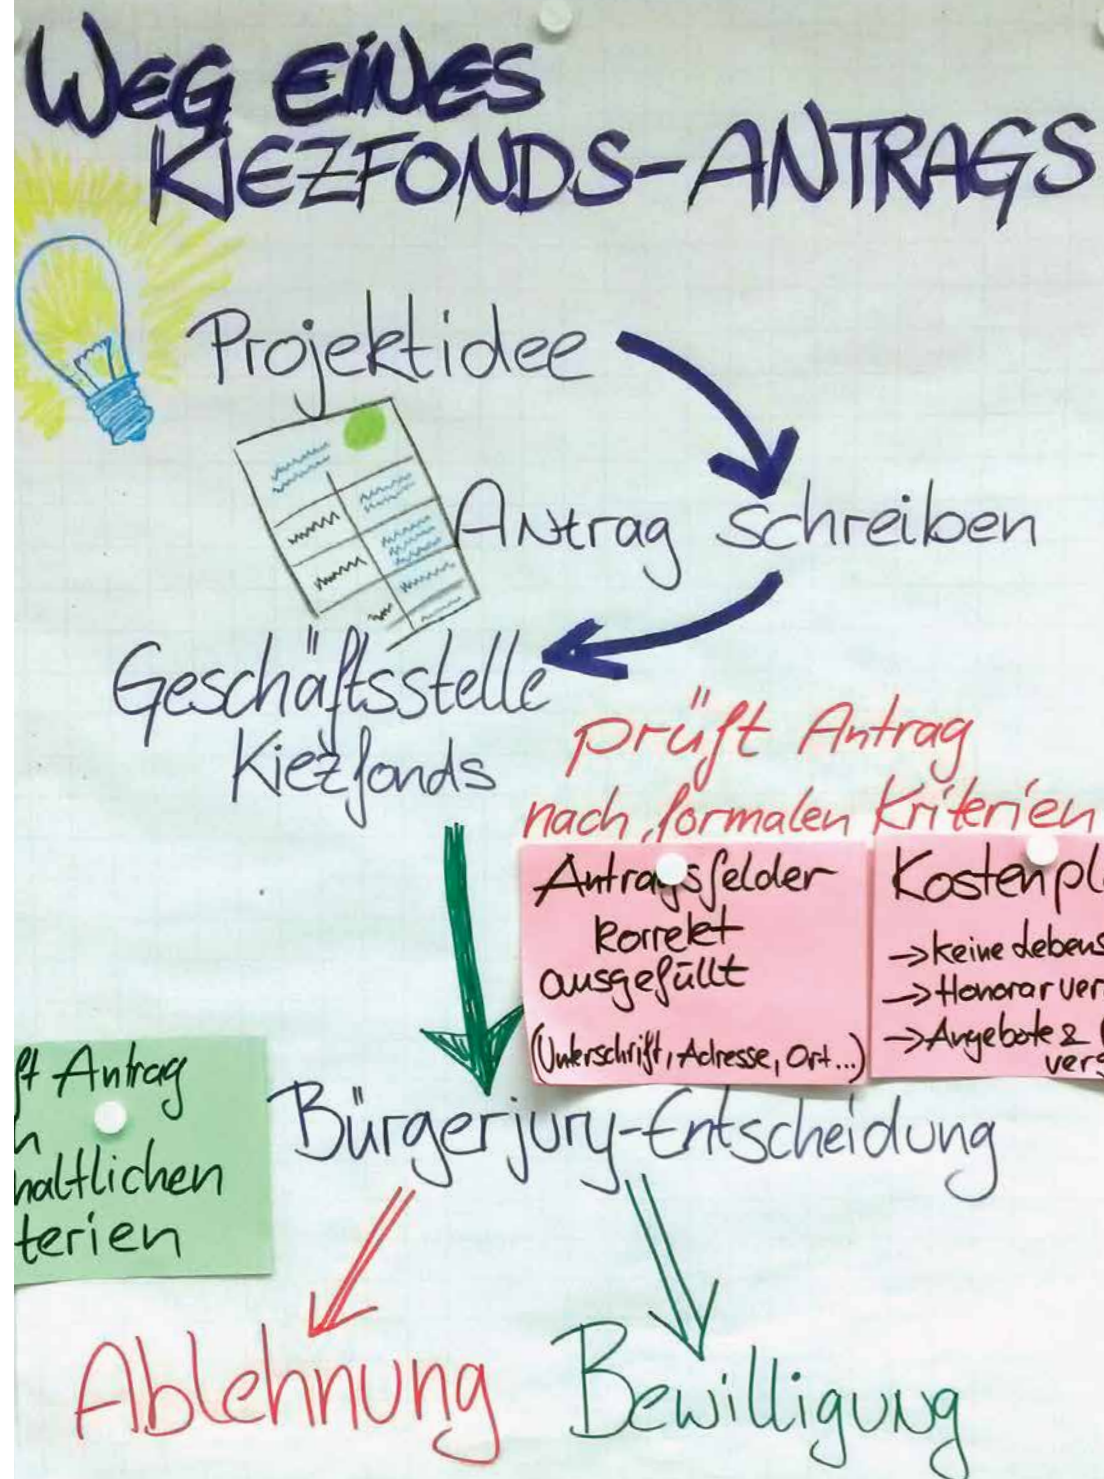 WEG EINES
KIEZFONDS-ANTRAGS
Projektidee
Antrag schreiben
Geschäftsstelle
Kiezfonds
prüft Antrag
nach formalen Kriterien
Antragsfelder
korrekt
ausgefüllt
(Unterschrift, Adresse, Ort...)
Kostenpl
→ keine Lebens
→ Honorar ver
→ Angebote &
vers
ft Antrag
haltlichen
terien
Bürgerjury-Entscheidung
Ablehnung
Bewilligung